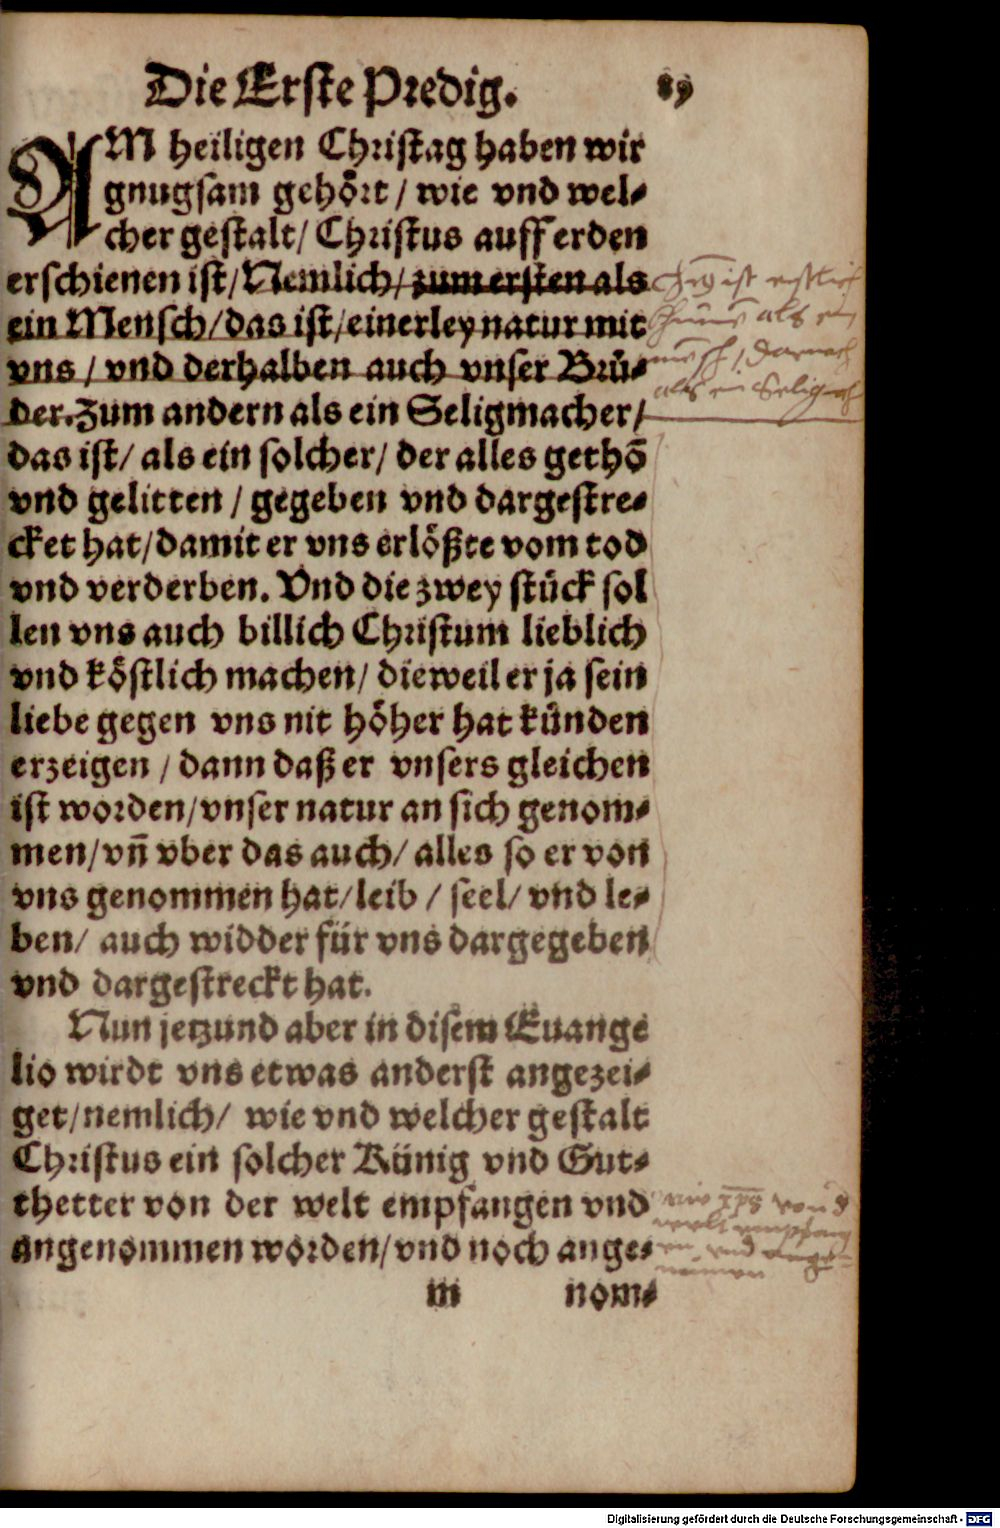 Die Erste Predig. 89
AM heiligen Christag haben wir
gnugsam gehört / wie vnd wel⸗
cher gestalt/ Christus auff erden
erschienen ist/ Nemlich/ zum ersten als
ein Mensch/ das ist/ einerley natur mit
vns / vnd derhalben auch vnser Brü⸗
der. Zum andern als ein Seligmacher/
das ist/ als ein solcher/ der alles gethō
vnd gelitten / gegeben vnd dargestre⸗
cket hat/ damit er vns erlößte vom tod
vnd verderben. Vnd die zwey stück sol
len vns auch billich Christum lieblich
vnd köstlich machen/ dieweil er ja sein
liebe gegen vns nit höher hat künden
erzeigen / dann daß er vnsers gleichen
ist worden/ vnser natur an sich genom⸗
men/ vñ vber das auch/ alles so er von
vns genommen hat/ leib / seel/ vnd le⸗
ben/ auch widder für vns dargegeben
vnd dargestreckt hat.
Nun jetzund aber in disem Euange
lio wirdt vns etwas anderst angezei⸗
get/ nemlich/ wie vnd welcher gestalt
Christus ein solcher Künig vnd Gut⸗
thetter von der welt empfangen vnd
angenommen worden/ vnd noch ange⸗
m nom⸗
ist erstlich
als ein
mēsch / darnach
als ein Seligm
wie xp̄s von d
welt empfang
en vnd ange⸗
nommen
Digitalisierung gefördert durch die Deutsche Forschungsgemeinschaft - DFG